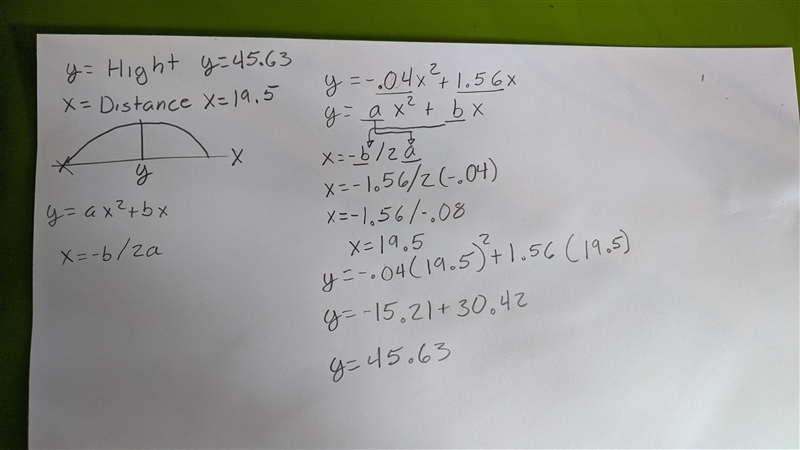 y= Hight y=45.63
x= Distance x=19.5
x
y
y=ax²+bx
x=-b/2a
y=-.04x²+1.56x
y= a x²+ b x
x=-b/2a
x=-1.56/2(-.04)
x=-1.56/-.08
x=19.5
y=-.04(19.5)²+1.56(19.5)
y=-15.21+30.42
y=45.63